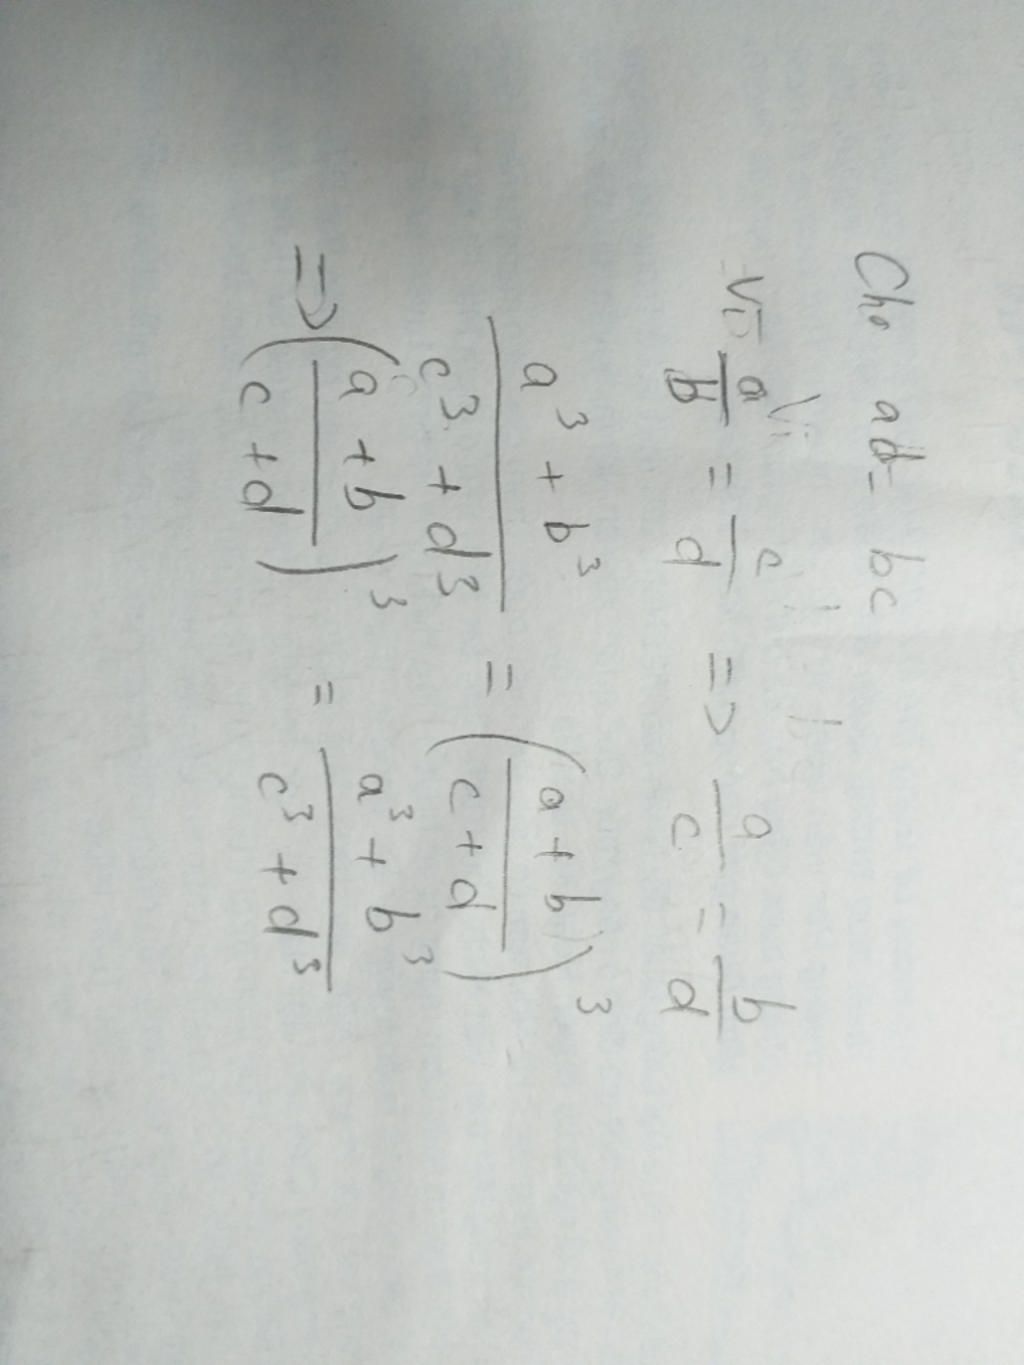 Cho ad = bc
Vì a/b = c/d => a/c = b/d
(a³ + b³)/(c³ + d³) = ((a + b)/(c + d))³
=> ((a + b)/(c + d))³ = (a³ + b³)/(c³ + d³)